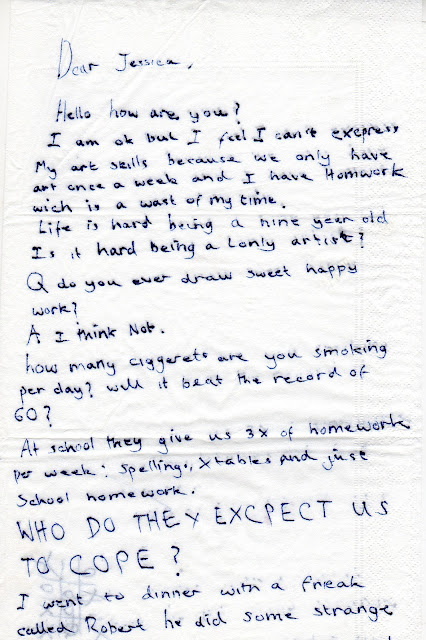 Dear Jessica,
Hello how are you?
I am ok but I feel I can't excpress
My art skills because we only have
art once a week and I have Homwork
wich is a wast of my time.
Life is hard being a nine year old
Is it hard being a Lonly artist?
Q do you ever draw sweet happy
work?
A I think Not.
how many ciggerets are you smoking
per day? will it beat the record of
60?
At school they give us 3x of homework
per week: spellings, Xtables and just
School homework.
WHO DO THEY EXCPECT US
TO COPE?
I went to dinner with a freak
called Robert he did some strange